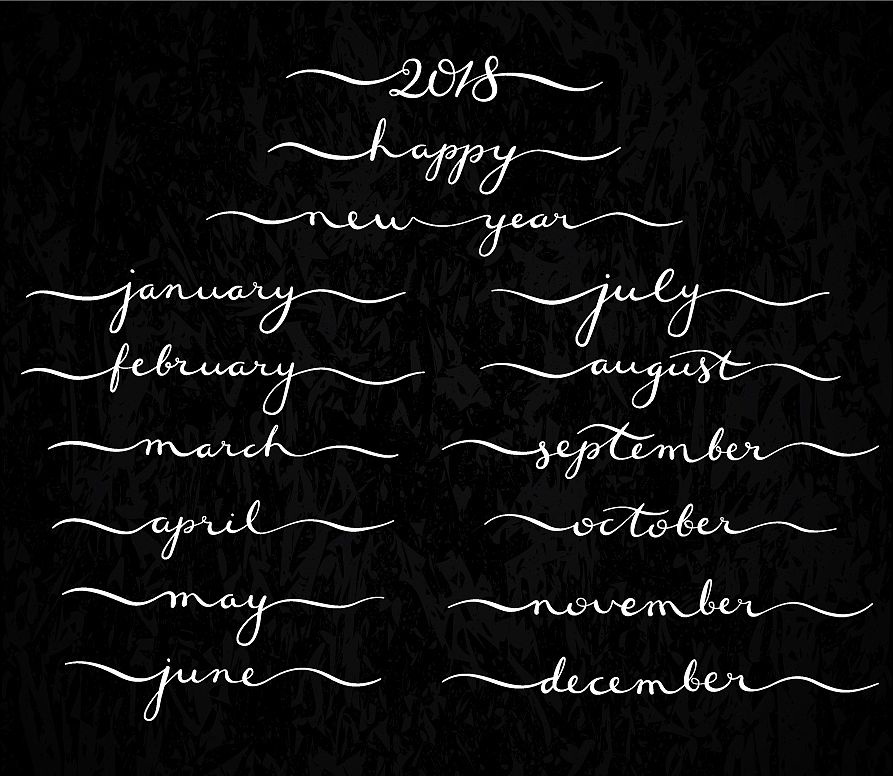 2018
happy
new year
january
february
march
april
may
june
july
august
september
october
november
december